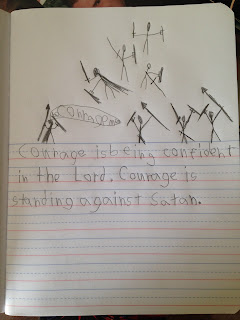 Courage
Courage is being confident
in the Lord. Courage is
standing against Satan.